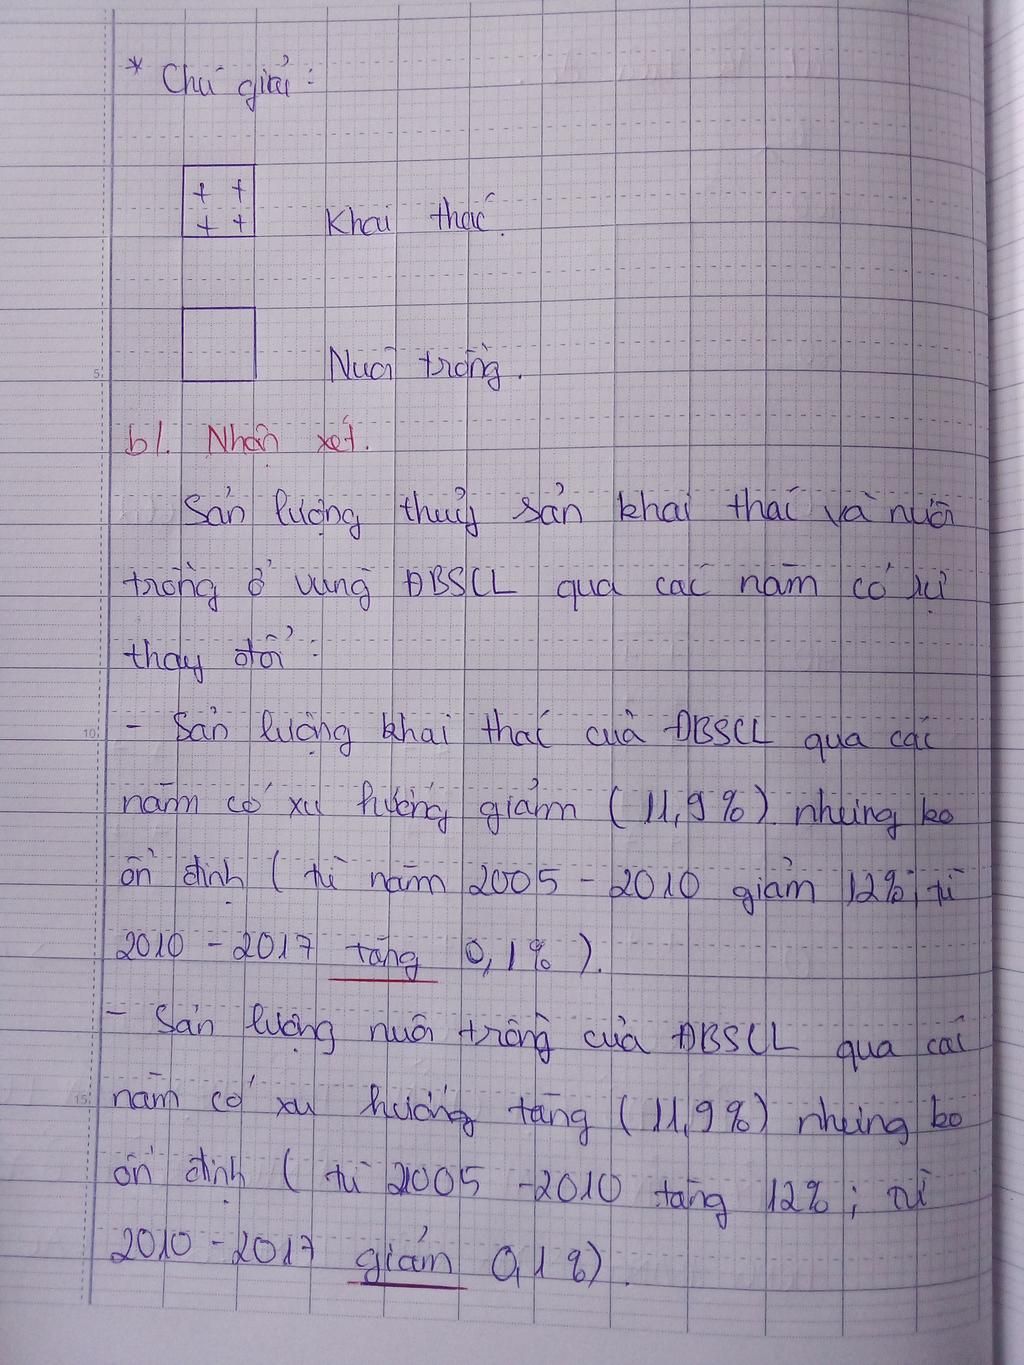 * Chú giải :
+ +
+ +
Khai thác.
Nuôi trồng.
b/. Nhận xét.
Sản lượng thuỷ sản khai thác và nuôi
trồng ở vùng ĐBSCL qua các năm có sự
thay đổi :
- Sản lượng khai thác của ĐBSCL qua các
năm có xu hướng giảm (11,9%) nhưng ko
ổn định ( từ năm 2005 - 2010 giảm 12%; từ
2010 - 2017 tăng 0,1% ).
- Sản lượng nuôi trồng của ĐBSCL qua các
năm có xu hướng tăng (11,9%) nhưng ko
ổn định ( từ 2005 - 2010 tăng 12% ; từ
2010 - 2017 giảm 0,1%).
5
10
15